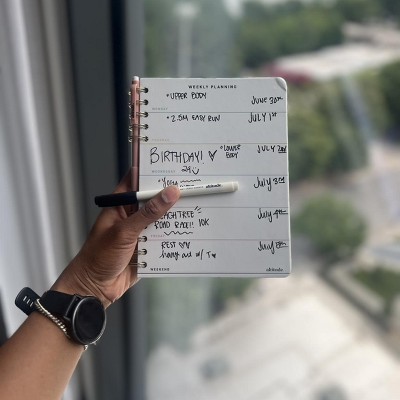 WEEKLY PLANNING
• UPPER BODY JUNE 30TH
• 2.5M EASY RUN JULY 1ST
BIRTHDAY! • LOWER BODY JULY 2ND
29
• Yoga July 3RD
July 4TH
ROAD RACE!! 10K
REST July 5TH
hang w/ T
WEEKEND